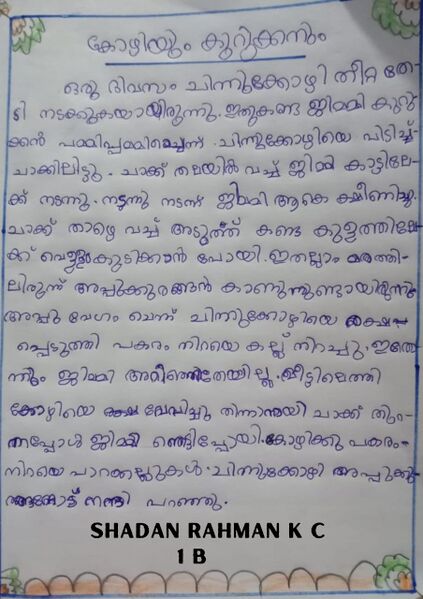 കോഴിയും കുറുക്കനും
ഒരു ദിവസം ചിന്നുക്കോഴി തീറ്റ തേ-
ടി നടക്കുകയായിരുന്നു. ഇതുകണ്ട ജിമ്മി കുറു-
ക്കൻ പമ്മിപ്പമ്മിച്ചെന്ന് ചിന്നുക്കോഴിയെ പിടിച്ച്
ചാക്കിലിട്ടു. ചാക്ക് തലയിൽ വച്ച് ജിമ്മി കാട്ടിലേ-
ക്ക് നടന്നു. നടന്നു നടന്ന് ജിമ്മി ആകെ ക്ഷീണിച്ചു.
ചാക്ക് താഴെ വച്ച് അടുത്ത് കണ്ട കുളത്തിലേ-
ക്ക് വെള്ളംകുടിക്കാൻ പോയി. ഇതല്ലാം മരത്തി-
ലിരുന്ന് അപ്പുക്കുരങ്ങൻ കാണുന്നുണ്ടായിരുന്നു
അപ്പു വേഗം ചെന്ന് ചിന്നുക്കോഴിയെ രക്ഷപ്പെ
പ്പെടുത്തി പകരം നിറയെ കല്ല് നിറച്ചു. ഇതൊ
ന്നും ജിമ്മി അറിഞ്ഞതേയില്ല. വീട്ടിലെത്തി
കോഴിയെ വേവിച്ചു തിന്നാനായി ചാക്ക് തുറ-
ന്നപ്പോൾ ജിമ്മി ഞെട്ടിപ്പോയി. കോഴിക്കു പകരം-
നിറയെ പാറക്കല്ലുകൾ. ചിന്നുക്കോഴി അപ്പുക്കു-
രങ്ങനോട് നന്ദി പറഞ്ഞു.
SHADAN RAHMAN K C
1 B